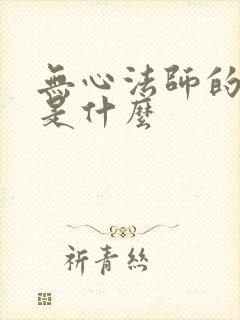 無心法師的
是什麼
祈青絲